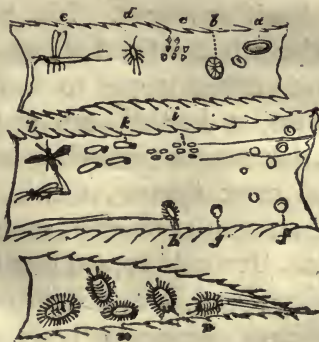 e d c b a
l k i
h g f
m n